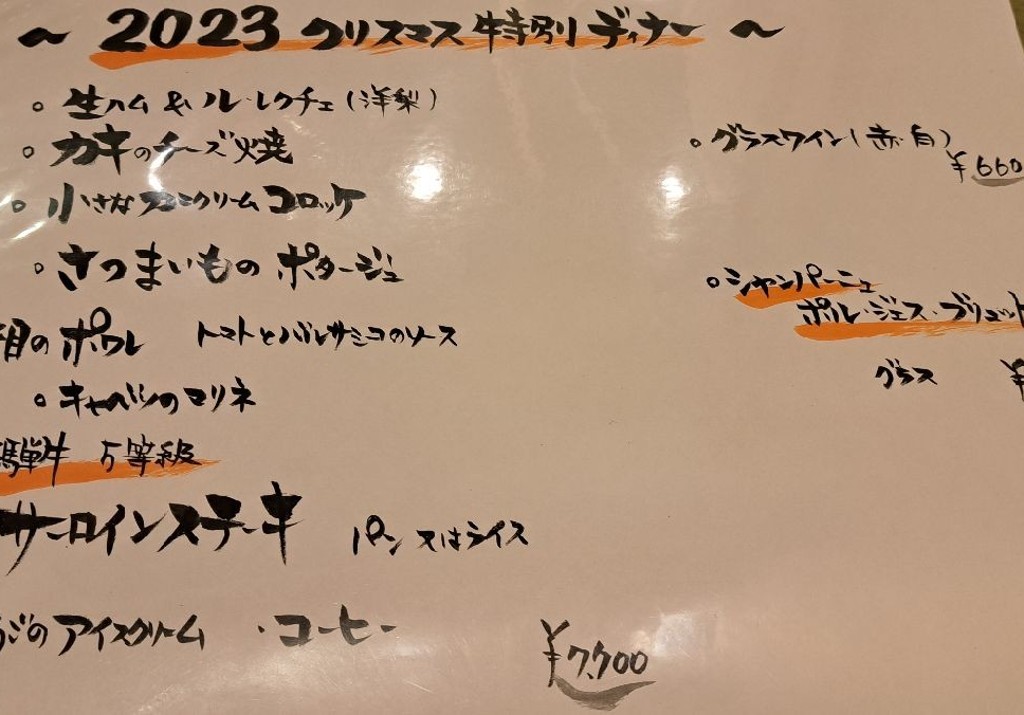 ~ 2023 クリスマス特別ディナー ~
。生ハム & ル・レクチェ(洋梨)
。カキのチーズ焼
。小さなカニクリームコロッケ
。さつまいものポタージュ
のポワレ トマトとバルサミコのソース
。キャベツのマリネ
騨牛 5等級
サーロインステーキ パン又はライス
のアイスクリーム ・コーヒー
¥7,700
。グラスワイン(赤・白)
¥660
。シャンパーニュ
ポル・ジェス・ブリュット
グラス ¥